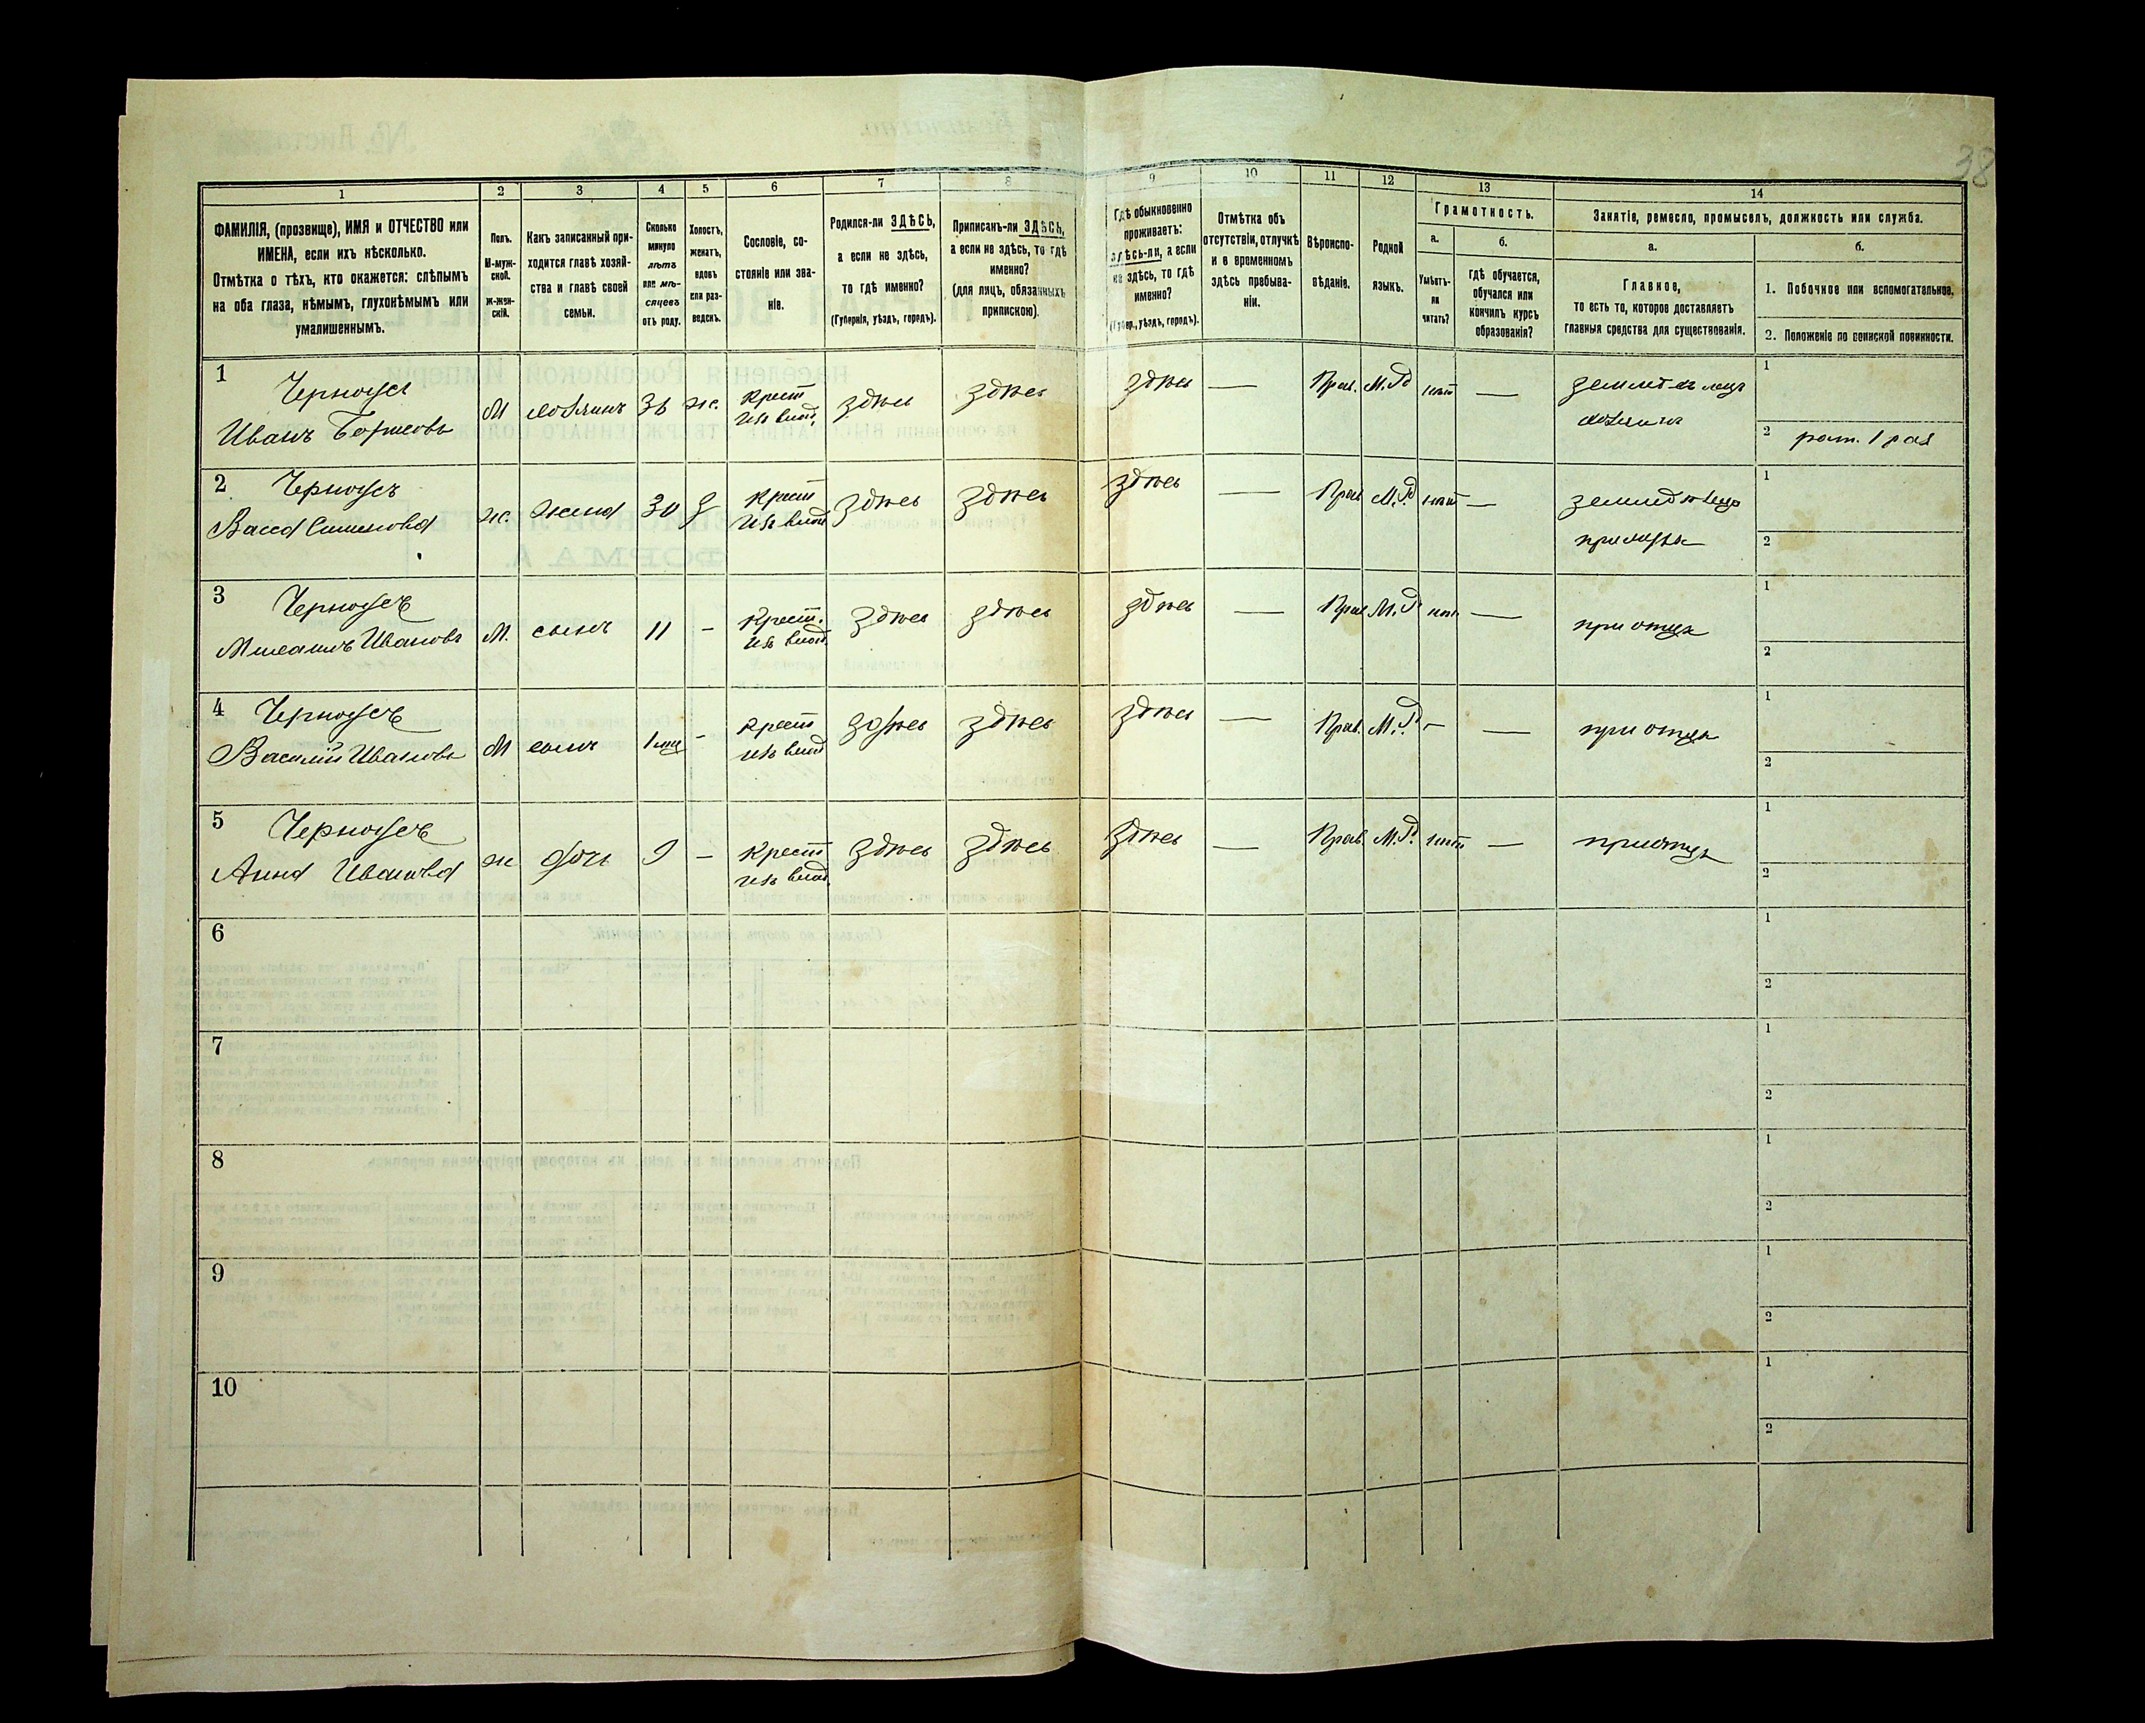 38
1 2 3 4 5 6 7 8 9 10 11 12 13 14
ФАМИЛІЯ, (прозвище), ИМЯ и ОТЧЕСТВО или
ИМЕНА, если ихъ нѣсколько.
Отмѣтка о тѣхъ, кто окажется: слѣпымъ
на оба глаза, нѣмымъ, глухонѣмымъ или
умалишеннымъ.
Полъ.
М-муж-
ской.
Ж-жен-
скій.
Какъ записанный при-
ходится главѣ хозяй-
ства и главѣ своей
семьи.
Сколько
минуло
лѣтъ
или мѣ-
сяцевъ
отъ роду.
Холостъ,
женатъ,
вдовъ
или раз-
веденъ.
Сословіе, со-
стояніе или зва-
ніе.
Родился-ли ЗДѢСЬ,
а если не здѣсь,
то гдѣ именно?
(Губернія, уѣздъ, городъ).
Приписанъ-ли ЗДѢСЬ,
а если не здѣсь, то гдѣ
именно?
(для лицъ, обязанныхъ
припискою).
Гдѣ обыкновенно
проживаетъ:
здѣсь-ли, а если
не здѣсь, то гдѣ
именно?
(Губер., уѣздъ, городъ).
Отмѣтка объ
отсутствіи, отлучкѣ
и о временномъ
здѣсь пребыва-
ніи.
Вѣроиспо-
вѣданіе.
Родной
языкъ.
Грамотность.
а.
Умѣетъ-
ли
читать?
б.
гдѣ обучается,
обучался или
кончилъ курсъ
образованія?
Занятіе, ремесло, промыселъ, должность или служба.
а.
Главное,
то есть то, которое доставляетъ
главныя средства для существованія.
б.
1. Побочное или вспомогательное.
2. Положеніе по воинской повинности.
1 Черноусъ
Иванъ М хозяинъ ж. Крест изъ влад. здѣсь здѣсь здѣсь — Прав. М.Р нѣт — хозяинъ
1
2 рат. 1 раз
2 Черноусъ
Васса Семенова ж. жена 30 З Крест изъ влад здѣсь здѣсь здѣсь — Прав М.Р. нѣт — при мужѣ
1
2
3 Черноусъ
Михаилъ Ивановъ М. сынъ 11 - Крест. изъ влад. здѣсь здѣсь здѣсь — Прав М.Р. нѣт — при отцѣ
1
2
4 Черноусъ
Василій Ивановъ М сынъ 1 мц - Крест изъ влад здѣсь здѣсь здѣсь — Прав. М.Р. — — при отцѣ
1
2
5 Черноусъ
Анна Иванова ж дочь 9 - Крест изъ влад. здѣсь здѣсь здѣсь — Прав. М.Р. нѣт — при отцѣ
1
2
6
1
2
7
1
2
8
1
2
9
1
2
10
1
2